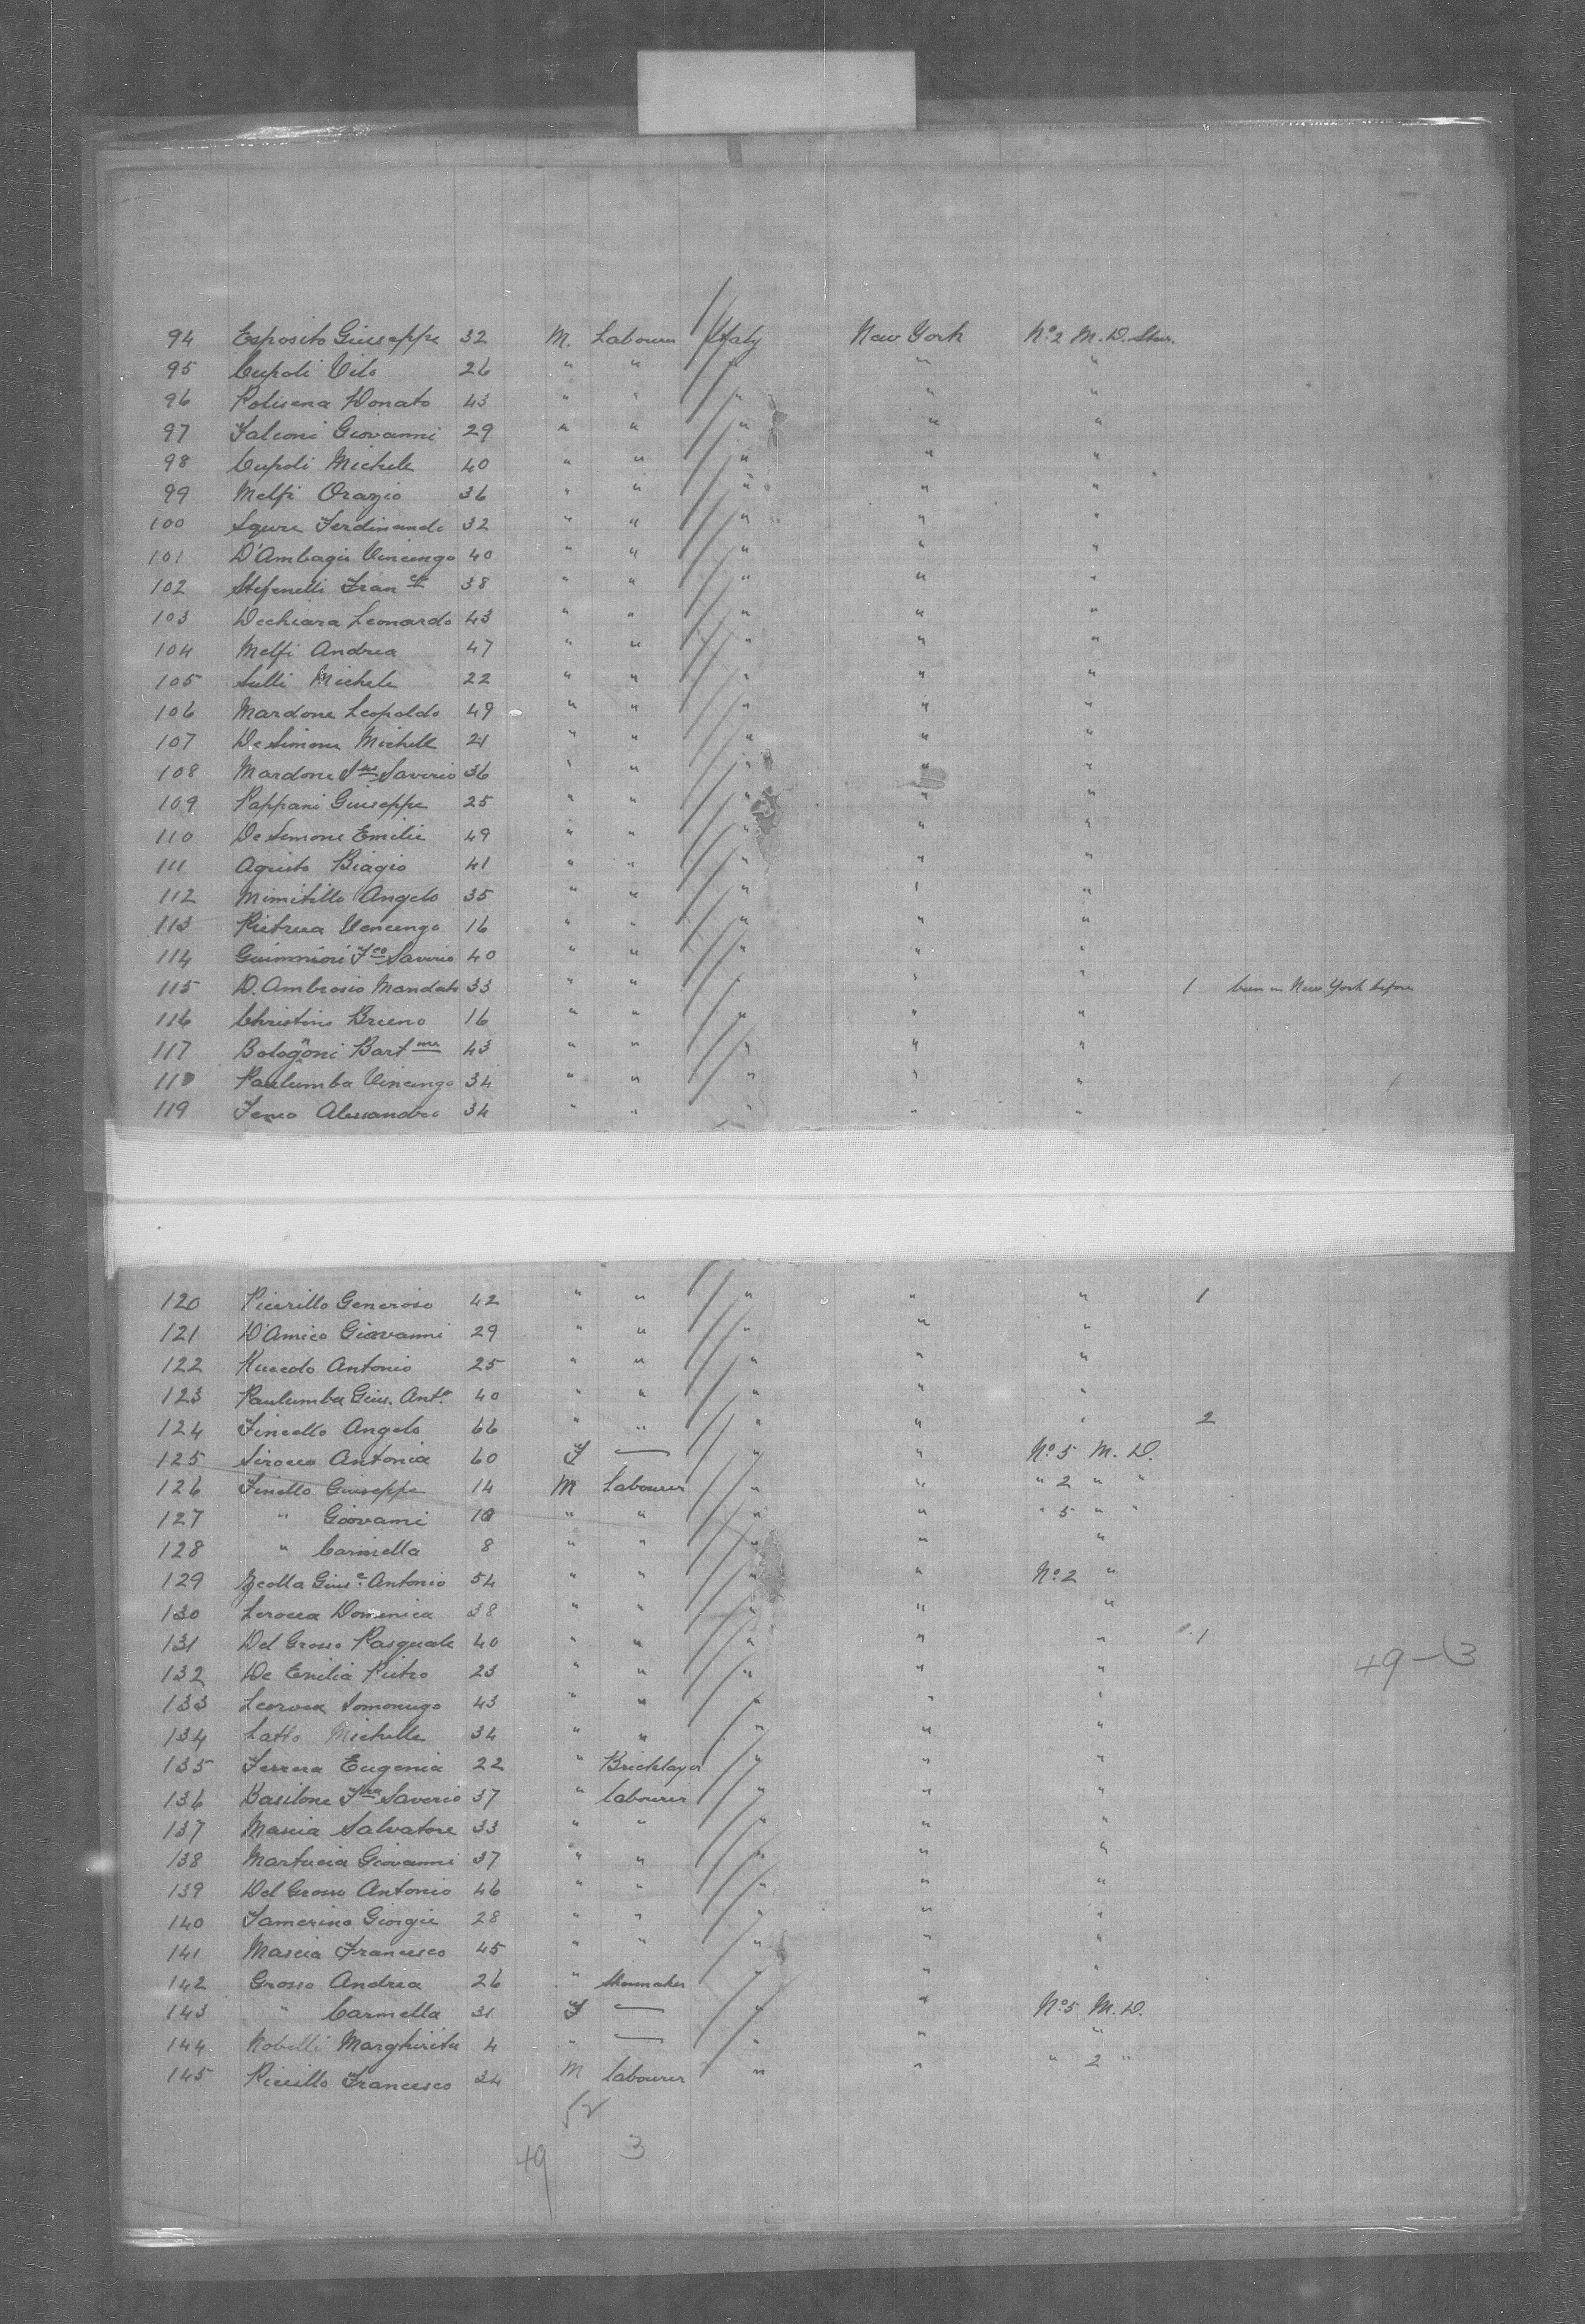 94 Esposito Giuseppe 32 M. Labourer Italy New York No 2 M. D. Star.
95 Cupoli Vito 26 " " " " "
96 Polisena Donato 43 " " " " "
97 Falconi Giovanni 29 " " " " "
98 Cupoli Michele 40 " " " " "
99 Melfi Orazio 36 " " " " "
100 Ferdinando 32 " " " " "
101 D'Ambagio Vincenzo 40 " " " " "
102 Stefanelli Fran 38 " " " " "
103 Dechiara Leonardo 43 " " " " "
104 Melfi Andrea 47 " " " " "
105 Sulli Michele 22 " " " " "
106 Mardone Leopoldo 49 " " " " "
107 De Simone Michele 21 " " " " "
108 Mardone Saverio 36 " " " " "
109 Pappani Giuseppe 25 " " " " "
110 De Simone Emilie 49 " " " " "
111 Agusto Biagio 41 " " " " "
112 Mimitillo Angelo 35 " " " " "
113 Vencenzo 16 " " " " "
114 Fco Saverio 40 " " " " "
115 D. Ambrosio Mandato 33 " " " " " 1 been in New York before
116 Christino Brueno 16 " " " " "
117 Bolognoni Bart 43 " " " " "
118 Paulumba Vincenzo 34 " " " " "
119 Alessandro 34 " " " " "
120 Picirillo Generoso 42 " " " " " 1
121 D'Amico Giovanni 29 " " " " "
122 Antonio 25 " " " " "
123 Paulumba Gius. Anto 40 " " " " "
124 Finello Angelo 66 " " " " " 2
125 Sirocco Antonia 60 F — " " No 5 M. D.
126 Finello Giuseppe 14 M Labourer " " " 2 " "
127 " Giovanni 10 " " " " " 5 " "
128 " Carmella 8 " " " " "
129 Antonio 54 " " " " No 2 "
130 Domenica 38 " " " " "
131 Del Grosso Pasquale 40 " " " " " 1
49-3
132 De Emilia Pietro 23 " " " " "
133 43 " " " " "
134 Latto Michelle 34 " " " " "
135 Ferrera Eugenia 22 " Bricklayer " " "
136 Basilone Fra Saverio 37 " labourer " " "
137 Mascia Salvatore 33 " " " " "
138 Martucia Giovanni 37 " " " " "
139 Del Grosso Antonio 46 " " " " "
140 Tamerino Giorgie 28 " " " " "
141 Mascia Francesco 45 " " " " "
142 Grosso Andrea 26 " Shoemaker " " "
143 " Carmella 31 F — " " No 5 M. D.
144 Nobelli Margherita 4 " — " " "
145 Picirillo Francesco 34 M labourer " " " 2 "
52
49 3